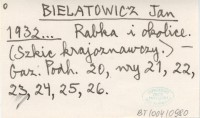 BIELATOWICZ Jan
1932... Rabka i okolice.
(Szkic krajoznawczy.) —
Gaz. Podh. 20, nry 21, 22,
23, 24, 25, 26.